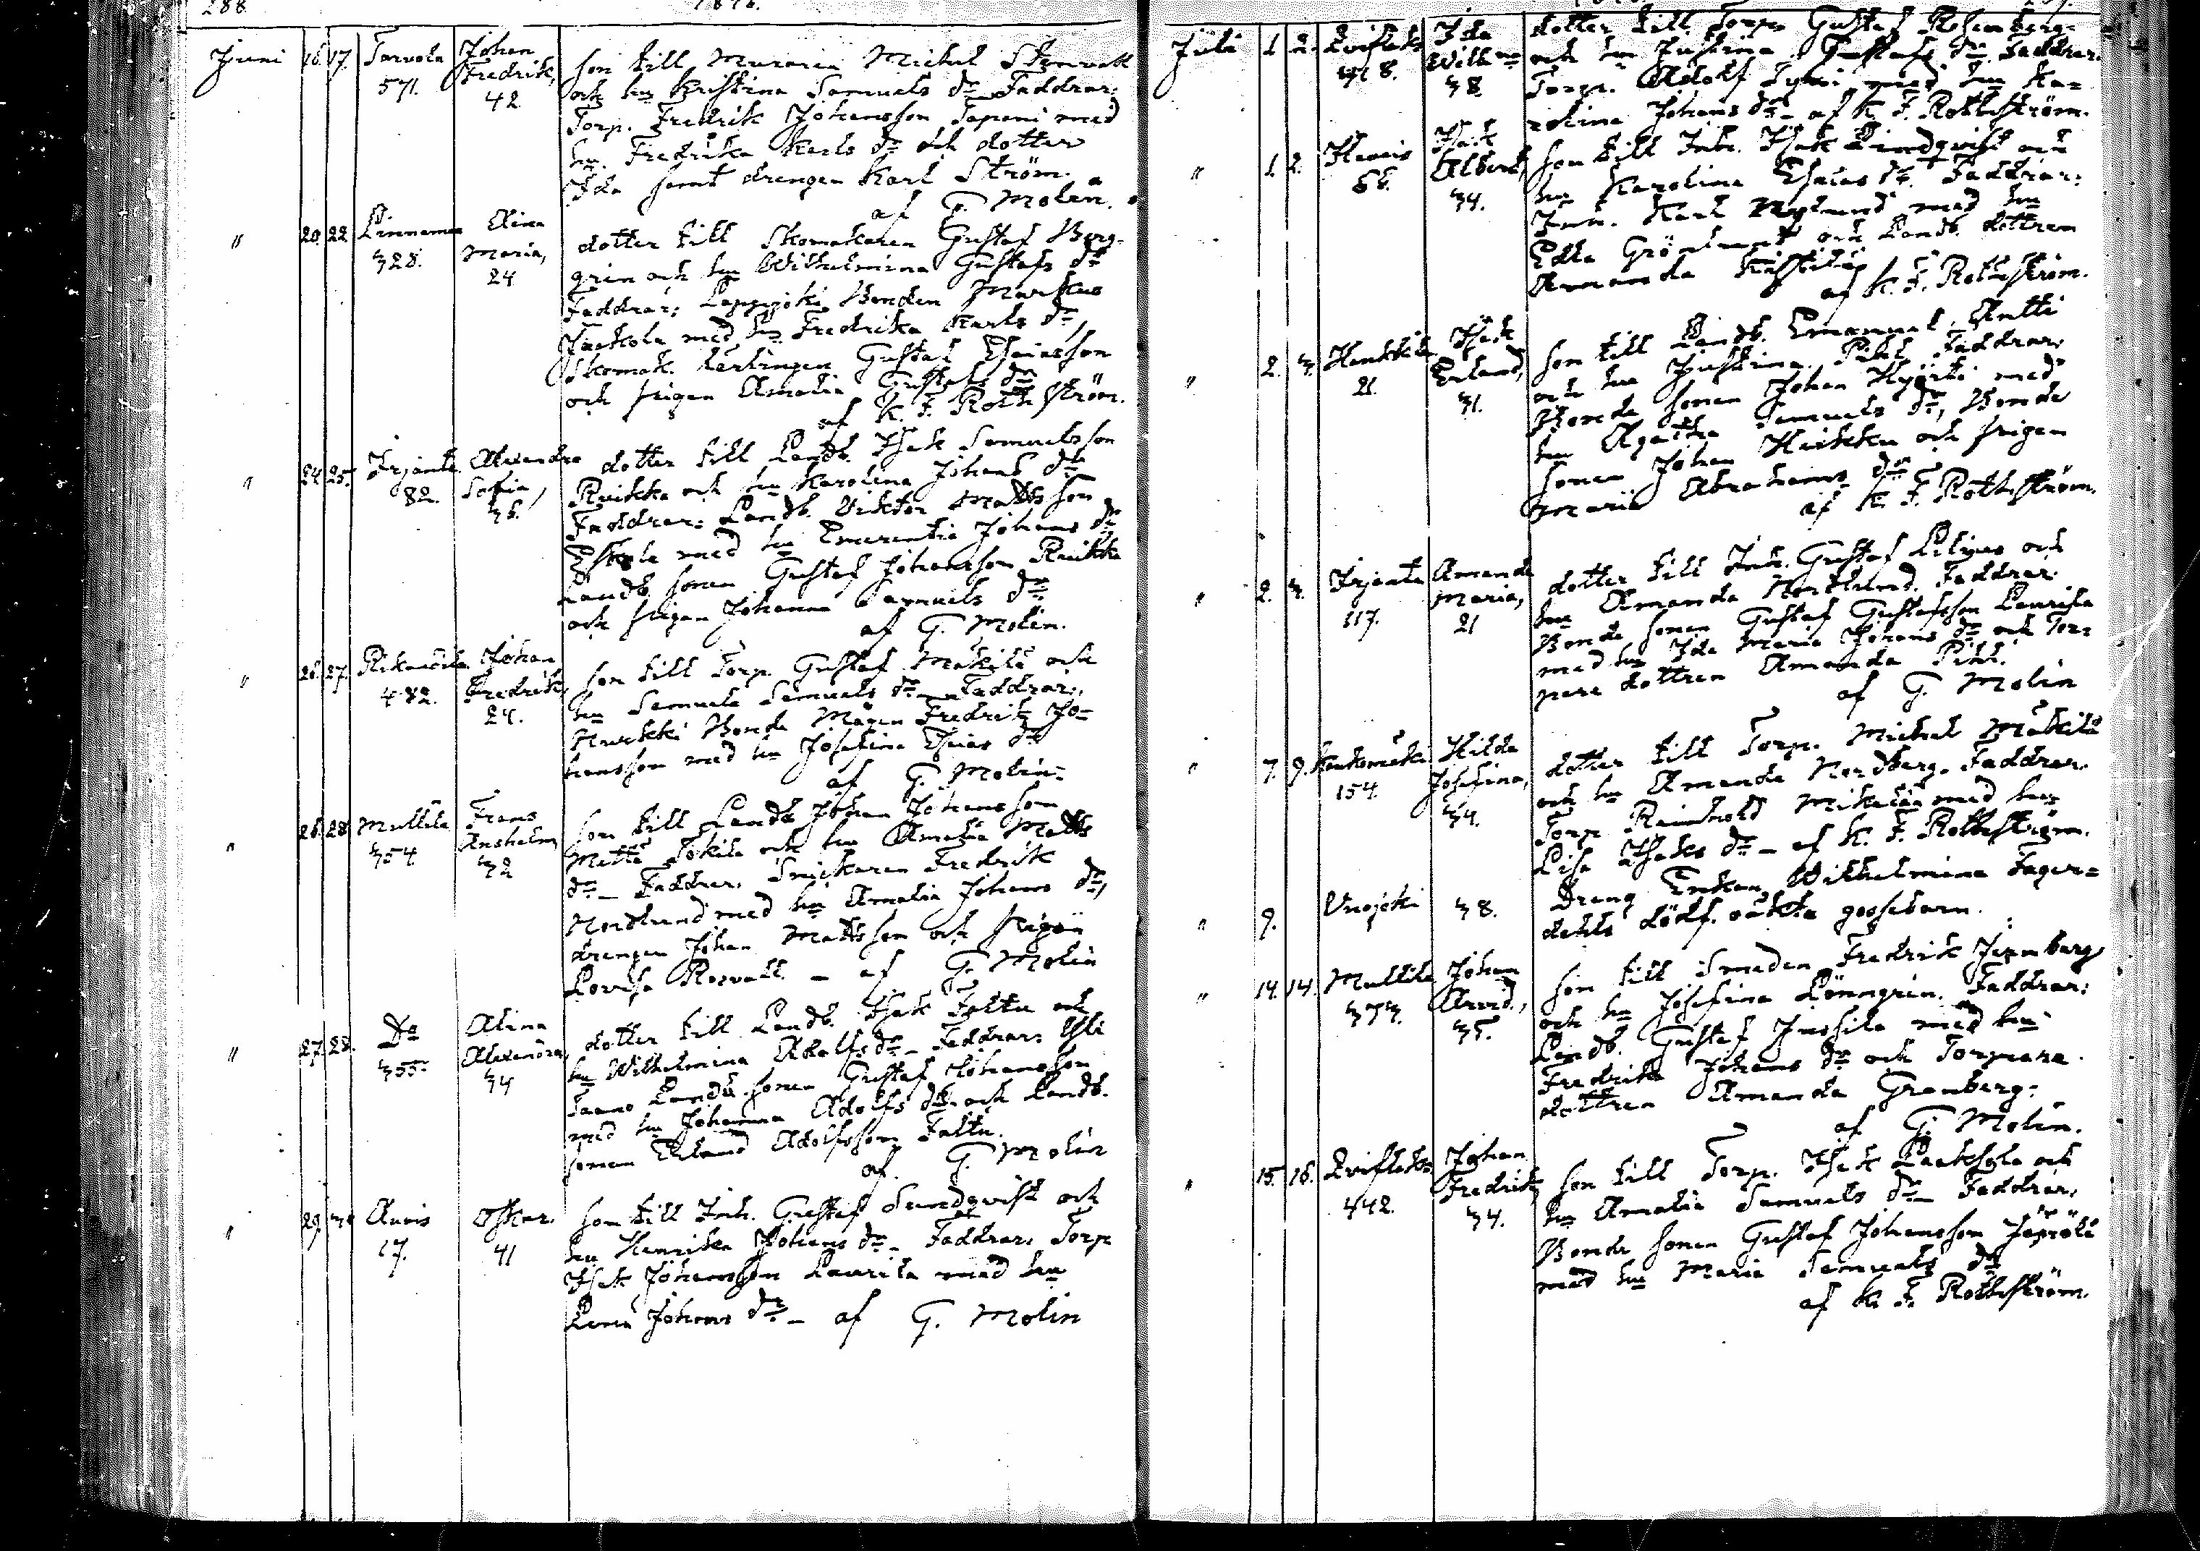 288.
Juni 16. 17. Torvola Johan
571. Fredrik,
42
son till Muraren Michel Stenvall
och hu Kristina Samuels dr Faddrar:
Torp. Fredrik Johansson Tapani med
hu Fredrika Karls dr och dotter
Ida samt drengen Karl Ström.
af G. Molin.
" 20. 22. Linnamaa Elina
328. Maria,
24
dotter till Skomakaren Gustaf Berg-
gren och hu Wilhelmina Gustafs dr
Faddrar: Lappijoki Bonden Markus
Jaakola med hu Fredrika Karls dr,
Skomak. lärlingen Gustaf Esaiasson
och pigan Amalia Gustafs dr
af K. F. Rothström.
" 24. 25. Irjante Alexandra
82. Sofia,
36.
dotter till Landb. Isak Samuelsson
Ruikka och hu Karolina Johans dr
Faddrar: Landb. Viktor Mattsson
Eskola med hu Emerentia Johans dr
Landb. sonen Gustaf Johansson Ruikka
och pigan Johanna Samuels dr
af G. Molin.
" 26. 27. Johan
482. Fredrik,
24.
son till Torp. Gustaf Mäkilä och
hu Samuela Samuels dr Faddrar:
Bonde Mågen Fredrik Jo-
hansson med hu Josefina Esaias dr
af G. Molin.
" 26. 28. Mullila Frans
354 Anshelm,
32
son till Landb. Johan Johansson
hu Amalia Matts
dr – Faddrar: Snickaren Fredrik
Nordlund med hu Amalia Johans dr,
drengen Johan Mattsson och pigan
Lovisa Rosvall – af G. Molin
" 27. 28. Do Alina
355 Alexandra,
34
dotter till Landb. Isak Faltu och
hu Wilhelmina Adolfs dr – Faddrar:
Landb. sonen Gustaf Johansson
med hu Johanna Adolfs dr och Landb.
sonen Erland Adolfsson Faltu.
af G. Molin
" 29. 30 Auvis Oskar.
17. 41
son till Inh. Gustaf Sundqvist och
hu Henrika Johans dr – Faddrar: Torp
Isak Johansson Laurila med hu
Lena Johans dr – af G. Molin
Juli 1. 2. Ida
Wilh:na
38.
dotter till Torp. Gustaf Rosenberg
och hu Justina Gustafs dr. Faddrar:
Torp. Adolf med hu Ka-
rolina Johans dr – af K. F. Rothström.
" 1. 2. Isak
Albert,
34.
son till Inh. Isak Lindqvist och
hu Karolina Esaias dr. Faddrar:
Inh. Karl med hu
Edla och Landb. dottren
Amanda
af K. F. Rothström.
" 2. 3. Henkkila Isak
21. Erland,
31.
son till Landb. Emanuel Antti
och hu Justina Pihl. Faddrar:
Bonde sonen Johan med
hu Agatha Samuels dr, Bonde
sonen Johan Heikku och pigan
Maria Abrahams dr
af K. F. Rothström.
" 2. 3. Irjante Amanda
117. Maria,
21
dotter till Inh. Gustaf Lilius och
hu Amanda Nordlund. Faddrar:
Bonde sonen Gustaf Gustafsson Laurila
med hu Ida Maria Johans dr och Tor-
pare dottren Amanda Pihl.
af G. Molin
" 7. 9. Hilda
154. Josefina,
34.
dotter till Torp. Michel Mäkilä
och hu Amanda Nordberg. Faddrar:
Torp Reinhold Mikola med hu
Lisa Isaks dr – af K. F. Rothström.
" 9. Vuojoki 38.
Dreng Enkan Wilhelmina Fager-
dahls dödf. oäkta gossebarn.
" 14. 14. Mullila Johan
373. Arvid,
35.
son till Smeden Fredrik Jernberg
och hu Josefina Lönngren. Faddrar:
Landb. Gustaf Jussila med hu
Fredrika Johans dr och Torpare
dottren Amanda Granberg.
af G. Molin.
" 15. 16. Johan
442. Fredrik,
34.
son till Torp. Isak och
hu Amalia Samuels dr – Faddrar:
Bonde sonen Gustaf Johansson
med hu Maria Samuels dr
af K. F. Rothström.